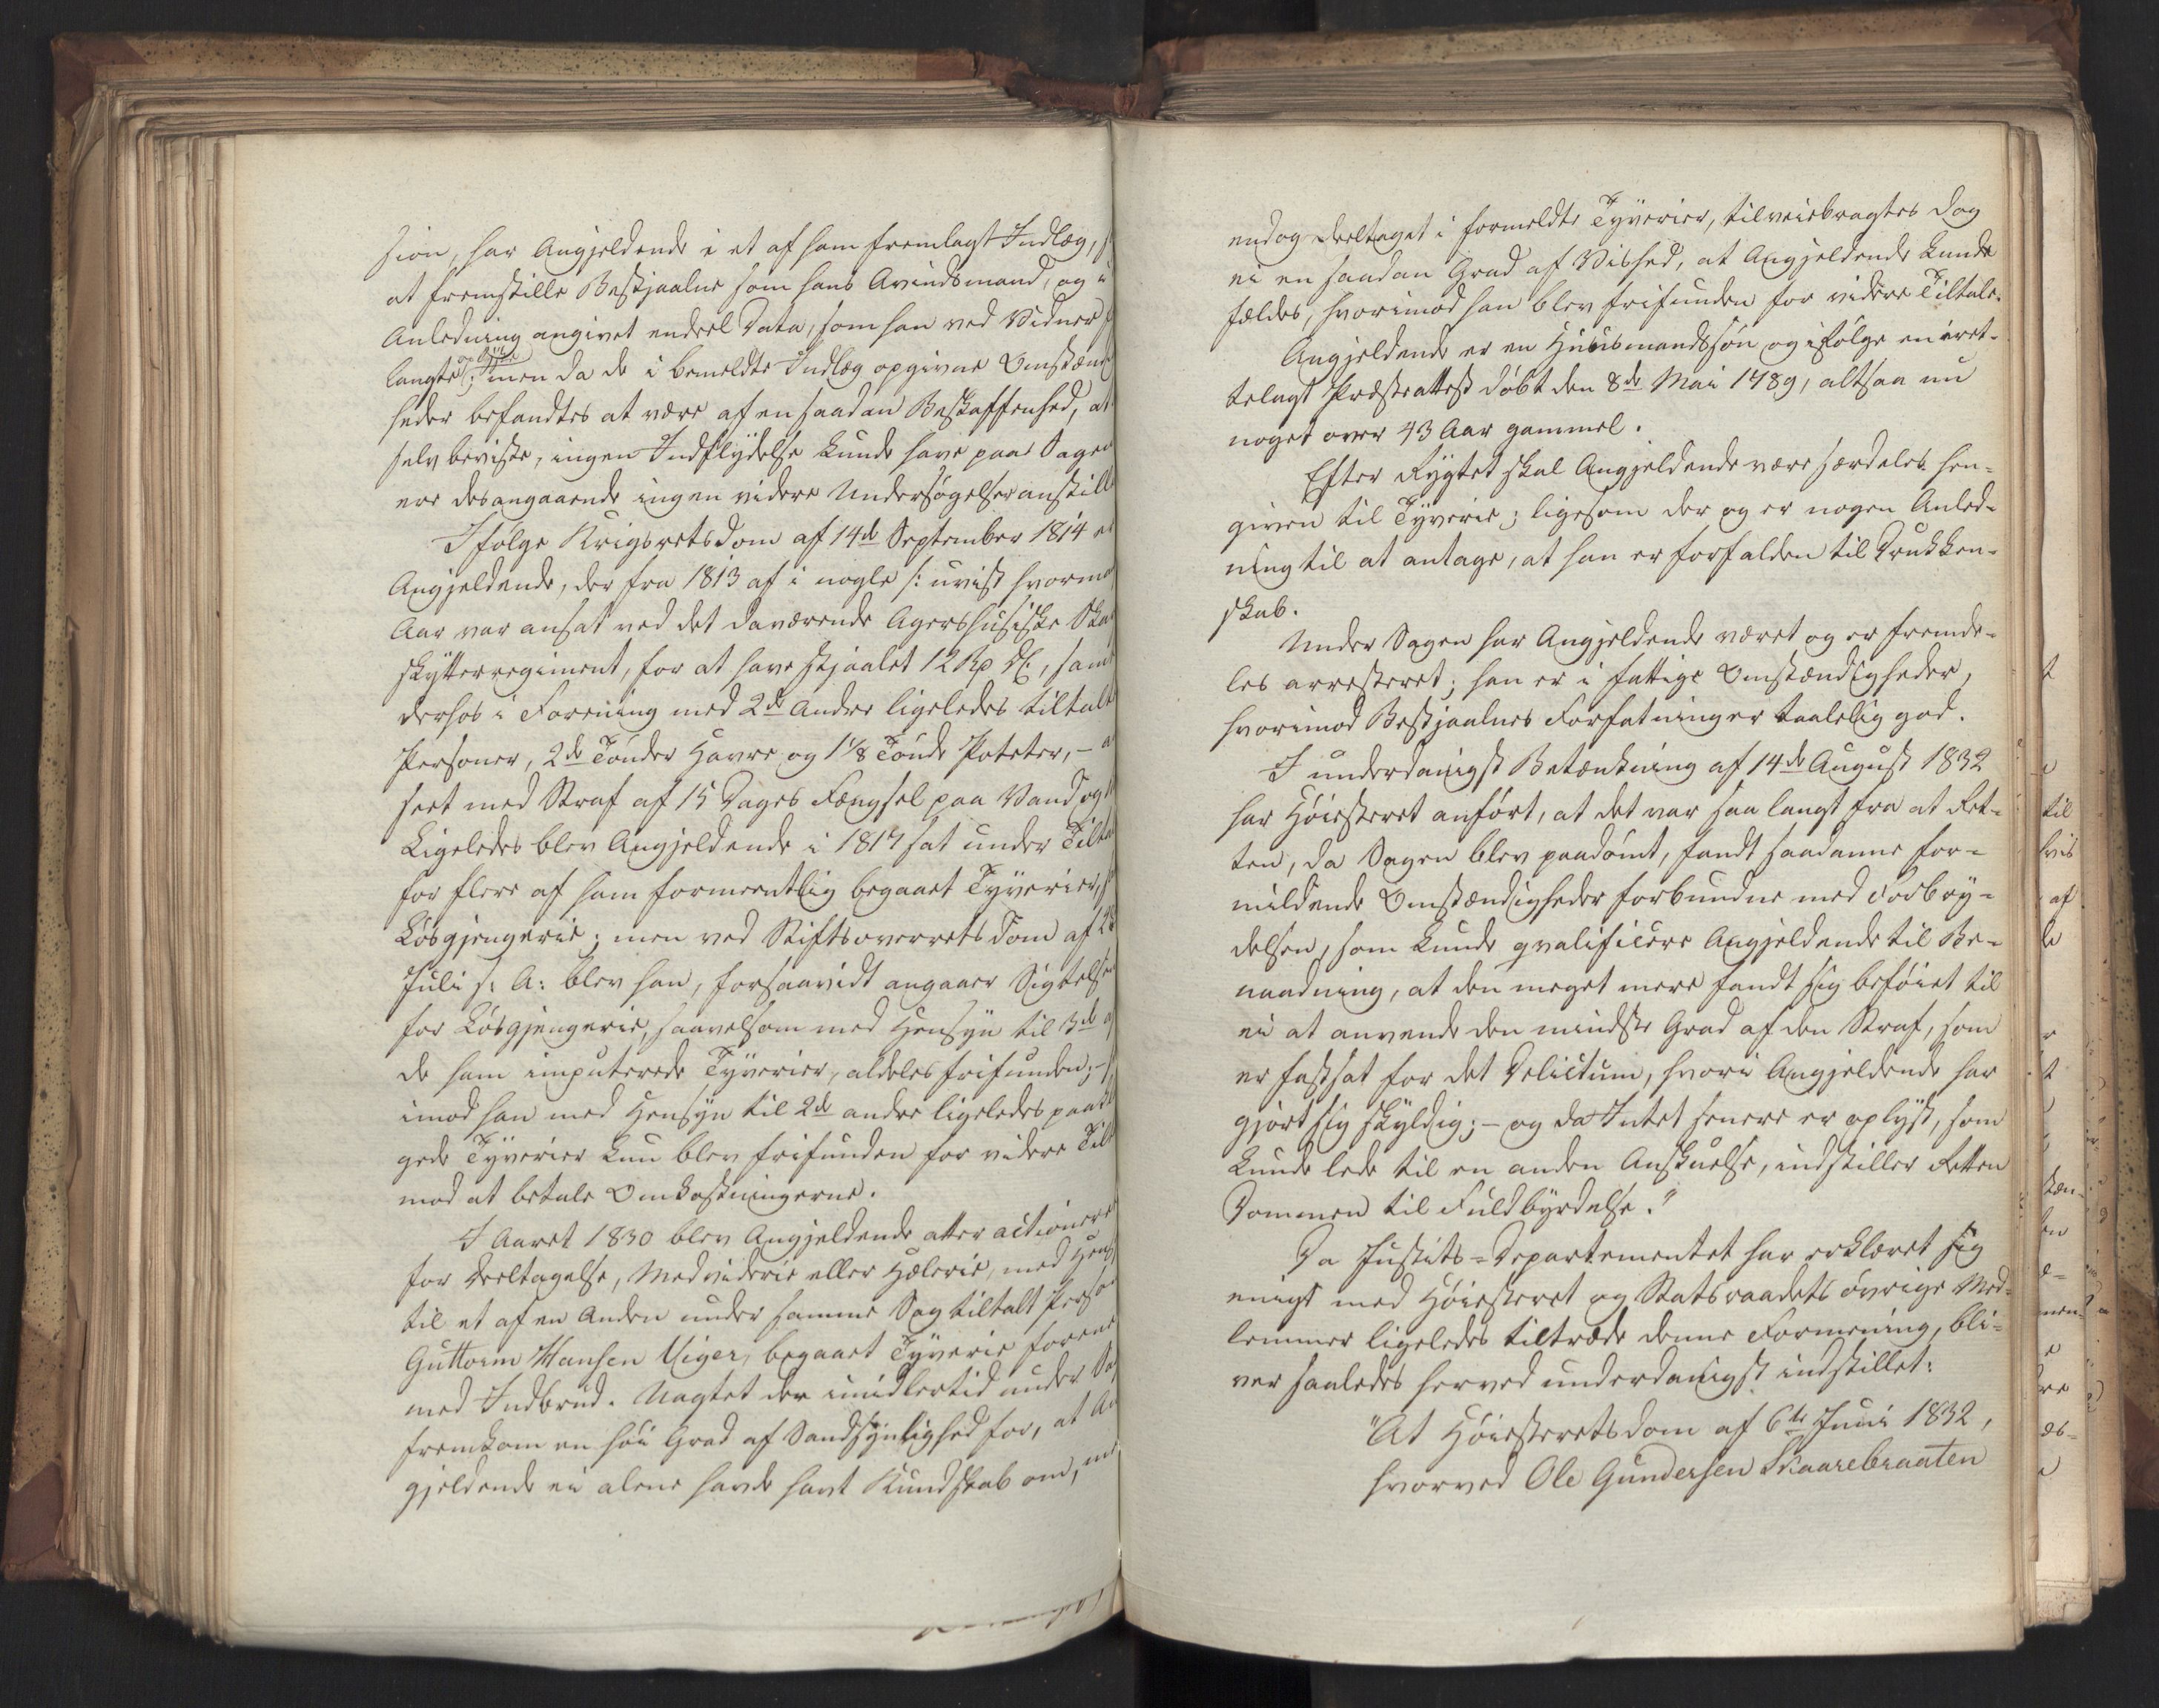 sion, har Angjeldende i et af ham fremlagt Indlæg,
at fremstille Bestjaalne som hans Avindsmand, og i
Anledning angivet endeel Data, som han ved Vidner
langte oplyste; men da de i bemeldte Indlæg opgivne Omstænd
heder befandtes at være af en saadan Beskaffenhed, at
selv beviste, ingen Indflydelse kunde have paa Sagen
ere desangaaende ingen videre Undersøgelser anstill
Ifølge Krigsretsdom af 14de September 1814 er
Angjeldende, der fra 1813 af i nogle /: uvist hvorma
Aar var ansat ved det daværende Agershusiske Ska
skytterregiment, for at have stjaalet 12 Rp d/:, samt
derhos i Forening med 2de Andre ligeledes tiltalt
Personer, 2de Tønder Havre og 1 1/8 Tønde Poteter, - a
seet med Straf af 15 Dages Fængsel paa Vand og
Ligeledes blev Angjeldende i 1817 sat under Tilta
for flere af ham formeentlig begaaet Tyverier,
Løsgjengerie; men ved Stiftsoverretsdom af 28
Juli s: A: blev han, forsaavidt angaaer Sigtelse
for Løsgjengerie, saavelsom med Hensyn til 3de
de ham imputerede Tyverier, aldeles frifunden; -
imod han med Hensyn til 2de andre ligeledes paak
gede Tyverier kun blev frifunden for videre Tilt
mod at betale Omkostningerne.
I Aaret 1830 blev Angjeldende atter actionere
for Deeltagelse, Medviderie eller Hælerie, med Hens
til et af en Anden under samme Sag tiltalt Perso
Guttorm Hansen Viger, begaaet Tyverie forene
med Indbrud. Uagtet der imidlertid under Sa
fremkom en høi Grad af Sandsynlighed for, at An
gjeldende ei alene havde havt Kundskab om, m
endog deeltaget i formeldte Tyverier, tilveiebragtes dog
ei en saadan Grad af Vished, at Angjeldende kunde
fældes, hvorimod han blev frifunden for videre Tiltale.
Angjeldende er en Huusmandssøn og ifølge en iret-
telagt Præsteattest døbt den 8de Mai 1789, altsaa nu
noget over 43 Aar gammel.
Efter Rygtet skal Angjeldende være særdeles hen-
given til Tyverie; ligesom der og er nogen Anled-
ning til at antage, at han er forfalden til Drukken-
skab.
Under Sagen har Angjeldende været og er fremde-
les arresteret; han er i fattige Omstændigheder,
hvorimod Bestjaalnes Forfatning er taalelig god.
I underdanigst Betænkning af 14de August 1832
har Høiesteret anført, at det var saa langt fra at Ret-
ten, da Sagen blev paadømt, fandt saadanne for-
mildende Omstændigheder forbundne med Forbry-
delsen, som kunde qvalificere Angjeldende til Be-
naadning, at den meget mere fandt sig beføiet til
ei at anvende den mindste Grad af den Straf, som
er fastsat for det Delictum, hvori Angjeldende har
gjort sig skyldig; - og da Intet senere er oplyst, som
kunde lede til en anden Anskuelse, indstiller Retten
Dommen til Fuldbyrdelse."
Da Justits-Departementet har erklæret sig
enigt med Høiesteret og Statsraadets øvrige Med-
lemmer ligeledes tiltræde denne Formening, bli-
ver saaledes herved underdanigst indstillet:
"At Høiesteretsdom af 6te Juni 1832,
hvorved Ole Gundersen Skaarebraaten